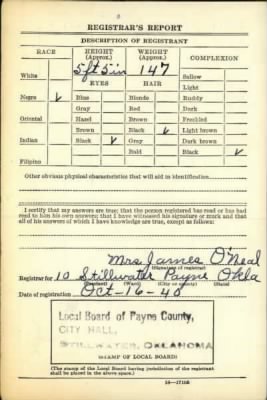 REGISTRAR'S REPORT
DESCRIPTION OF REGISTRANT
RACE HEIGHT (Approx.) WEIGHT (Approx.) COMPLEXION
5ft 5in 147
White Sallow
EYES HAIR Light
Negro ✓ Blue Blonde Ruddy
Gray Red Dark
Oriental Hazel Brown Freckled
Brown Black ✓ Light brown
Indian Black ✓ Gray Dark brown
Bald Black ✓
Filipino
Other obvious physical characteristics that will aid in identification
I certify that my answers are true; that the person registered has read or has had
read to him his own answers; that I have witnessed his signature or mark and that
all of his answers of which I have knowledge are true, except as follows:
Mrs James O'Neal
(Signature of registrar)
Registrar for 10 Stillwater Payne Okla
(Precinct) (Ward) (City or county) (State)
Date of registration Oct-16-40
Local Board of Payne County,
CITY HALL,
STILLWATER, OKLAHOMA
(STAMP OF LOCAL BOARD)
(The stamp of the Local Board having jurisdiction of the registrant
shall be placed in the above space.)
16—17105